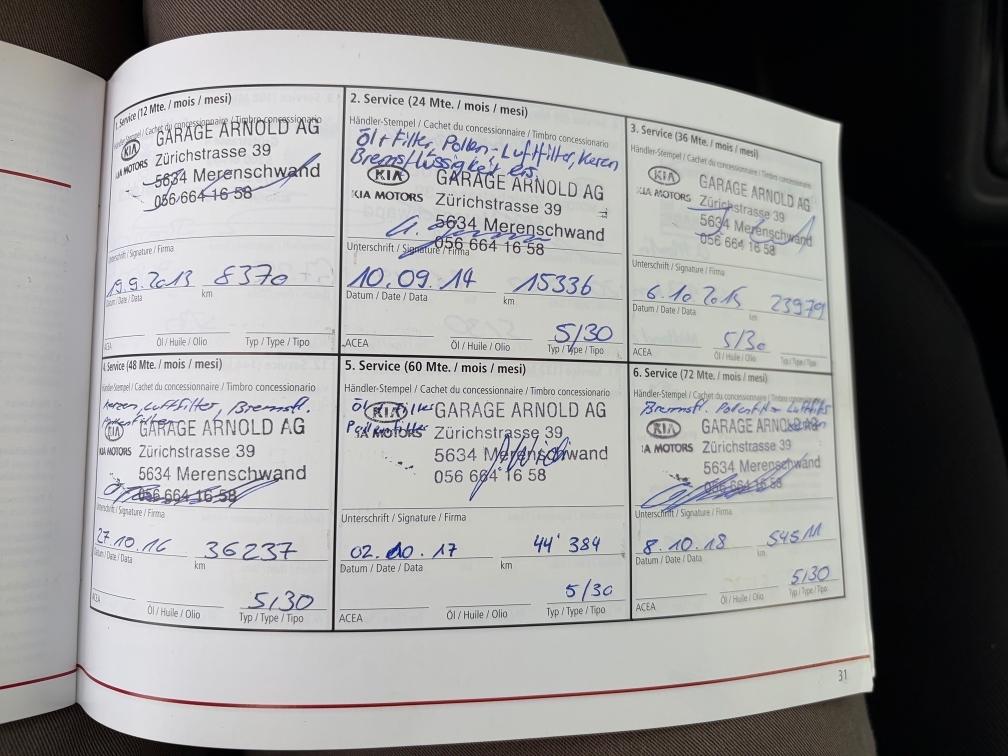 1. Service (12 Mte. / mois / mesi)
Händler-Stempel / Cachet du concessionnaire / Timbro concessionario
KIA GARAGE ARNOLD AG
KIA MOTORS Zürichstrasse 39
5634 Merenschwand
056 664 16 58
Unterschrift / Signature / Firma
19.9.2013 8370
Datum / Date / Data km
ACEA Öl / Huile / Olio Typ / Type / Tipo
2. Service (24 Mte. / mois / mesi)
Händler-Stempel / Cachet du concessionnaire / Timbro concessionario
Öl + Filter, Pollen-Luftfilter, Kerzen
Bremsflüssigkeit ers.
KIA GARAGE ARNOLD AG
KIA MOTORS Zürichstrasse 39
5634 Merenschwand
056 664 16 58
Unterschrift / Signature / Firma
10.09.14 15336
Datum / Date / Data km
5/30
ACEA Öl / Huile / Olio Typ / Type / Tipo
3. Service (36 Mte. / mois / mesi)
Händler-Stempel / Cachet du concessionnaire / Timbro concessionario
KIA GARAGE ARNOLD AG
KIA MOTORS Zürichstrasse 39
5634 Merenschwand
056 664 16 58
Unterschrift / Signature / Firma
6.10.2015 23979
Datum / Date / Data km
5/30
ACEA Öl / Huile / Olio Typ / Type / Tipo
4. Service (48 Mte. / mois / mesi)
Händler-Stempel / Cachet du concessionnaire / Timbro concessionario
Kerzen, Luftfilter, Bremsfl.
Pollenfilter
KIA GARAGE ARNOLD AG
KIA MOTORS Zürichstrasse 39
5634 Merenschwand
056 664 16 58
Unterschrift / Signature / Firma
27.10.16 36237
Datum / Date / Data km
5/30
ACEA Öl / Huile / Olio Typ / Type / Tipo
5. Service (60 Mte. / mois / mesi)
Händler-Stempel / Cachet du concessionnaire / Timbro concessionario
Öl
Pollenfilter
KIA GARAGE ARNOLD AG
KIA MOTORS Zürichstrasse 39
5634 Merenschwand
056 664 16 58
Unterschrift / Signature / Firma
02.10.17 44'384
Datum / Date / Data km
5/30
ACEA Öl / Huile / Olio Typ / Type / Tipo
6. Service (72 Mte. / mois / mesi)
Händler-Stempel / Cachet du concessionnaire / Timbro concessionario
Bremsfl. Polenfilter Luftfilter
KIA GARAGE ARNOLD AG
KIA MOTORS Zürichstrasse 39
5634 Merenschwand
056 664 16 58
Unterschrift / Signature / Firma
8.10.18 54511
Datum / Date / Data km
5/30
ACEA Öl / Huile / Olio Typ / Type / Tipo
31